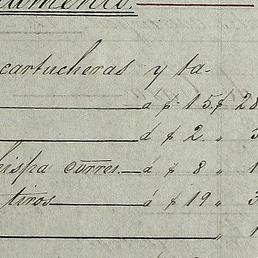 cartucheras y ta-
á $ 15 $ 28
á $ 2 " 3
hispa corres. á $ 8 " 1
tiros á $ 19 " 3
" 1